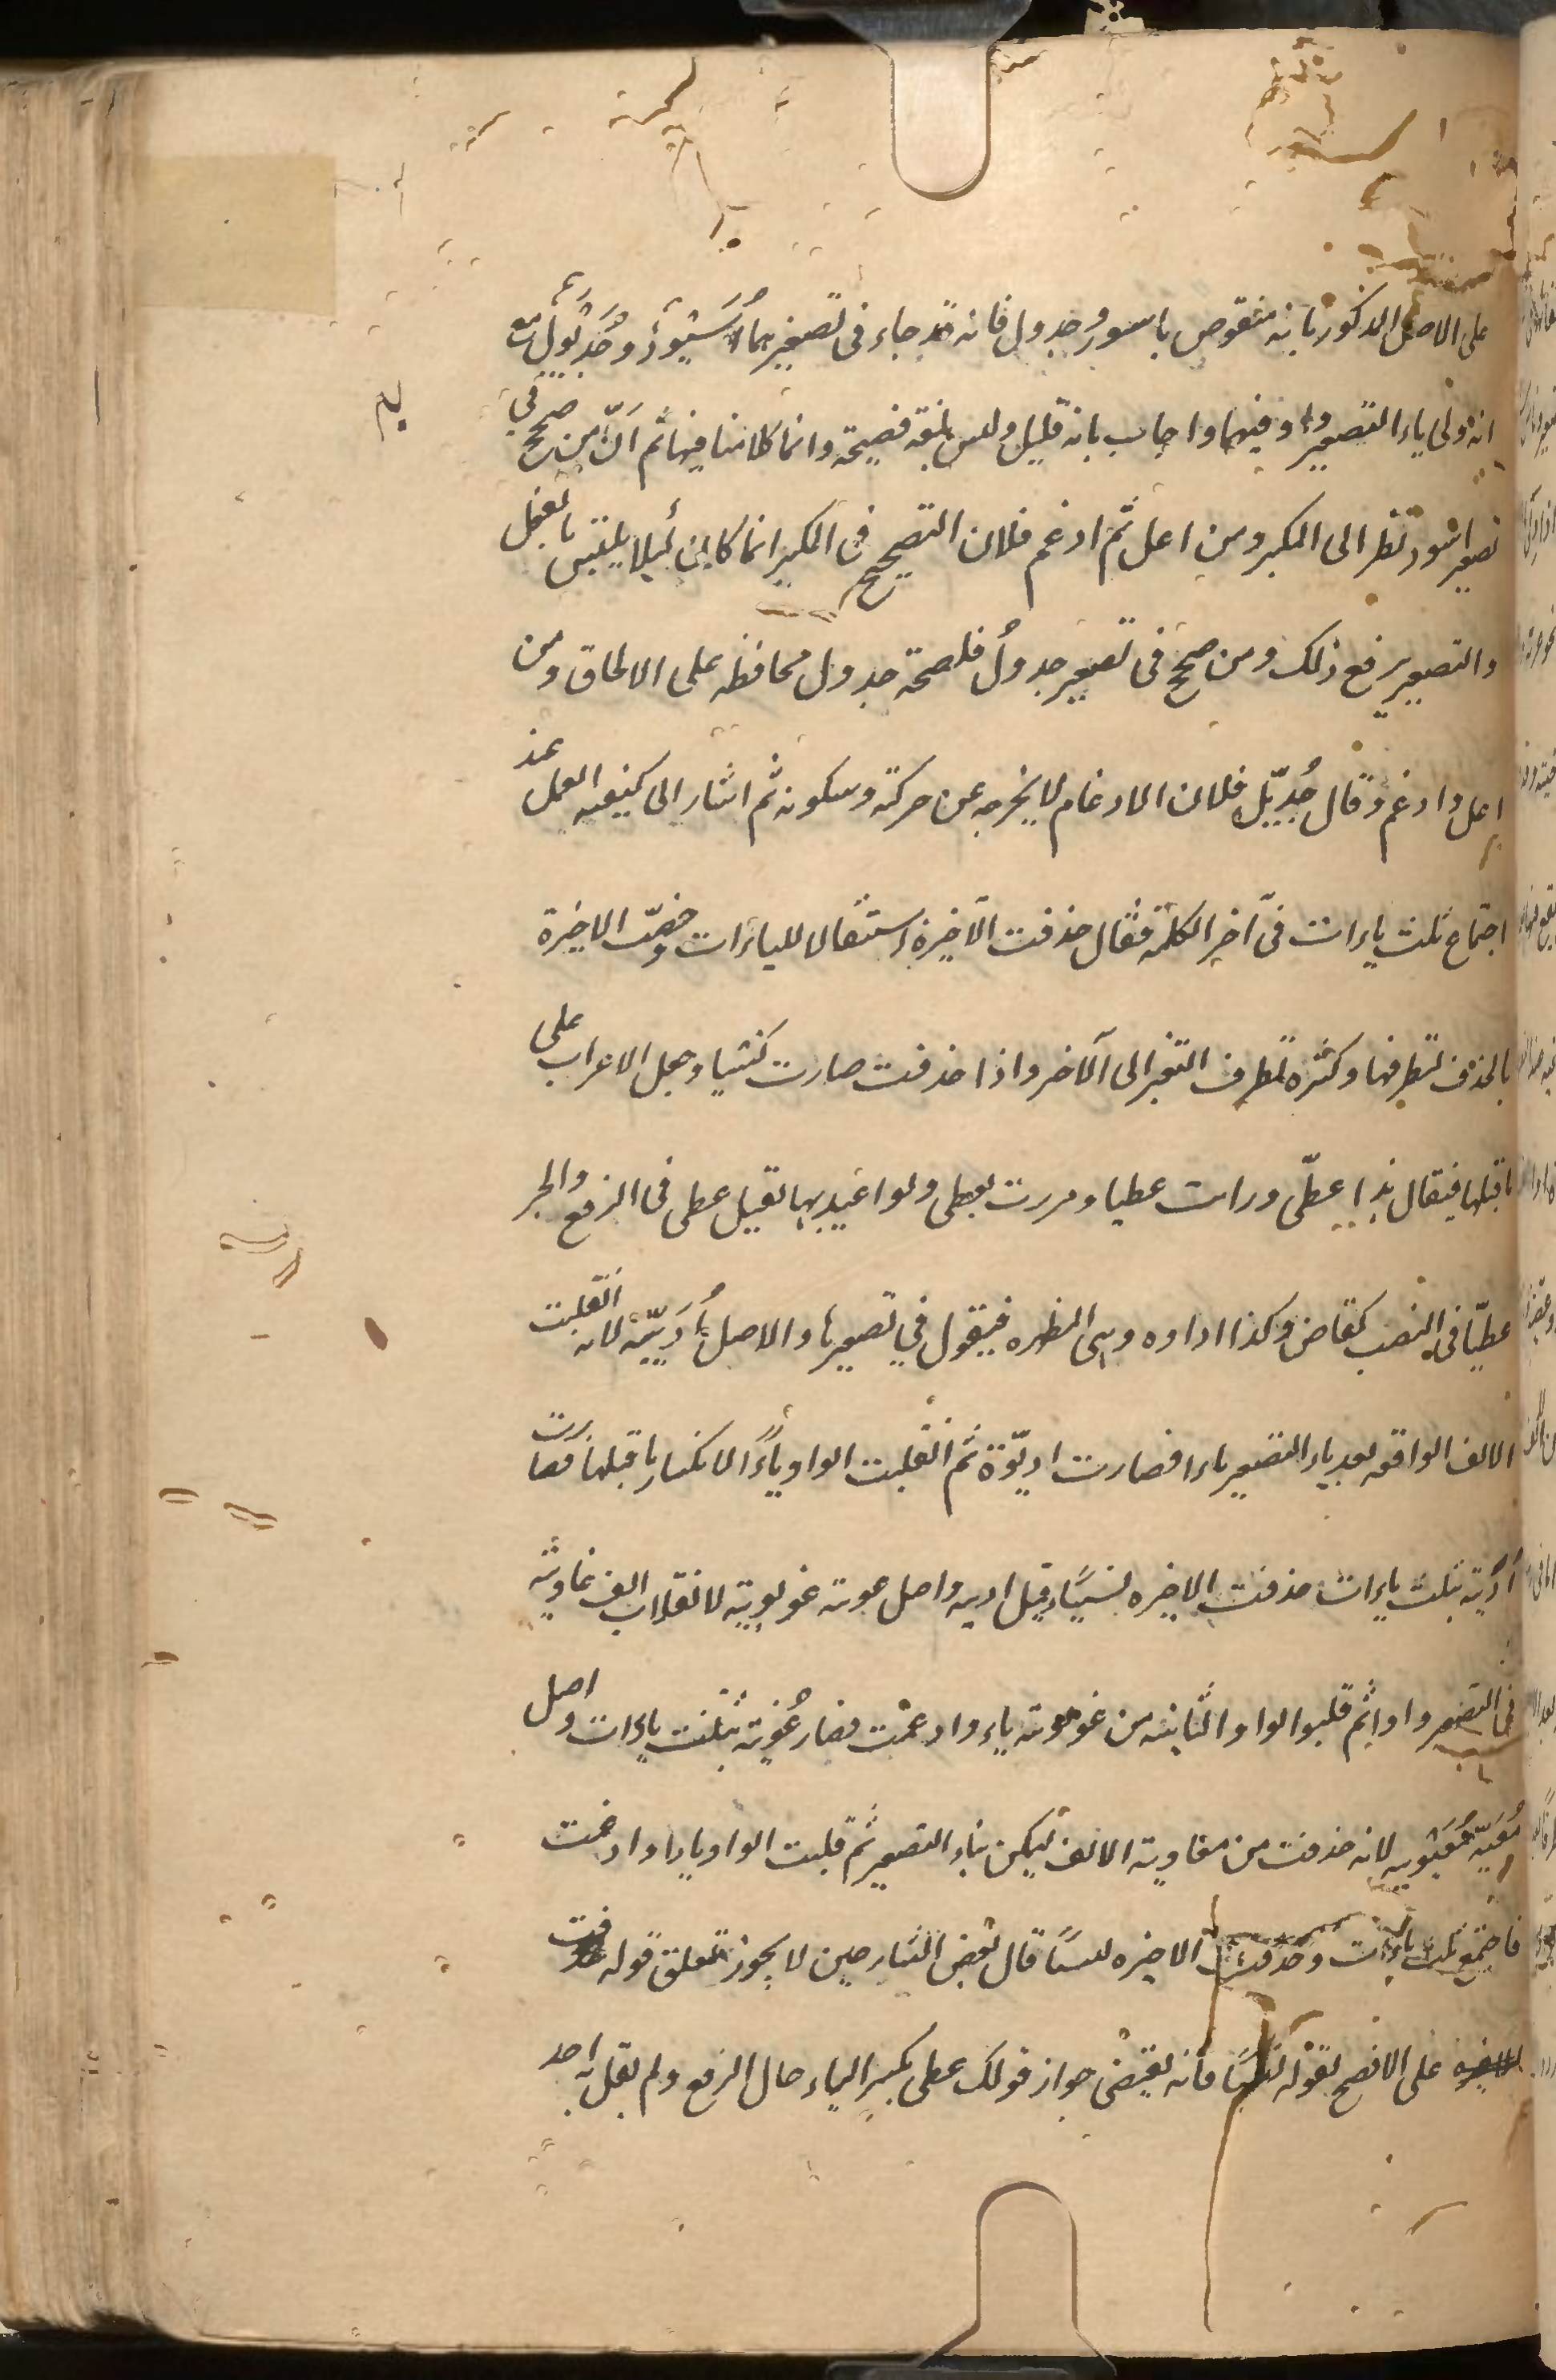 على الاصل المذكور بانه منقوص باسود وجدول فانه قد جاء فى تصغيرهما اُسَيْوِدُ وجُدَيْوِل مع
انه ولى ياء التصغير واو فيهما واجاب بانه قليل وليس بلغة فصيحة وانما كلامنا فيها ثم انّ من صحح فى
تصغير اسود نظر الى المكبر ومن اعل ثم ادغم فلان التصحيح فى المكبر انما كان لئلا يلتبس بالفعل
والتصغير يرفع ذلك ومن صحح فى تصغير جدول فلصحة جدول محافظه على الالحاق ومن
اعل وادغم وقال جُدَيّل فلان الادغام لا يخرجه عن حركته وسكونه ثم اشار الى كيفيه العمل عند
اجتماع ثلث ياءات فى آخر الكلمة فقال حذفت الاخيرة استثقالا للياءات وخصّت الاخيرة
بالحذف لتطرفها وكثرة تطرف التغير الى الآخر واذا حذفت صارت نسيا وجعل الاعراب على
ما قبلها فيقال هذا عطىّ ورايت عطيا ومررت بعطى ولو اعتد بها لقيل عطى فى الرفع والجر
عطيّا فى النصب كقاض وكذا اداوه وهى المطهره فيقول في تصغيرها والاصل اُدَيِّيَة لانه انقلبت
الالف الواقعه بعد ياء التصغير ياءا فصارت اديّوة ثم انقلبت الواو ياءً لانكسار ما قبلها فصارت
اُديّية بثلث ياءات حذفت الاخيره نسيًا وقيل اديه واصل غويه غويوية لانقلاب الف غاوية
فى التصغير واوا ثم قلبوا الواو الثانيه من غويويه ياء وادغمت فصار غُوَيّية بثلث ياءات واصل
مُعَيّة مُعَيْوِيه لانه حذفت من معاوية الالف ليكن بناء التصغير ثم قلبت الواو ياءا وادغمت
فاجتمع ثلث ياءات وحذفت الاخيره نسيًا قال بعض الشارحين لا يجوز تعلق قوله حذفت
على الافصح بقوله نسيًا فانه يقتضى جواز قولك عطى بكسر الياء حال الرفع ولم يقل به احد